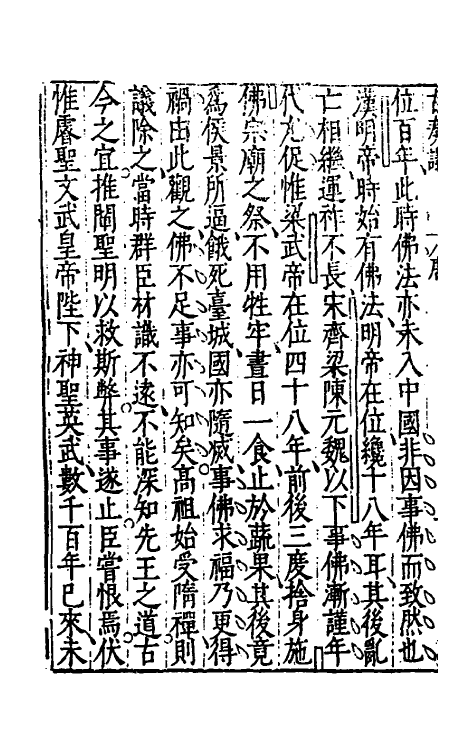 位百年此時佛法亦未入中國非因事佛而致然也
漢明帝時始有佛法明帝在位纔十八年耳其後亂
亡相繼運祚不長宋齊梁陳元魏以下事佛漸謹年
代尤促惟梁武帝在位四十八年前後三度捨身施
佛宗廟之祭不用牲牢晝日一食止於蔬果其後竟
爲侯景所逼餓死臺城國亦隨滅事佛求福乃更得
禍由此觀之佛不足事亦可知矣高祖始受隋禪則
議除之當時群臣材識不遠不能深知先王之道古
今之宜推闡聖明以救斯弊其事遂止臣嘗恨焉伏
惟睿聖文武皇帝陛下神聖英武數千百年已來未